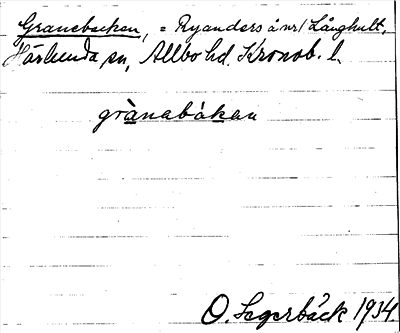 Granebacken, = Ryanders å nr 1 Långhult,
Härlunda sn, Allbo hd. Kronob. l.
grànabàkan
O. Segerbäck 1934.